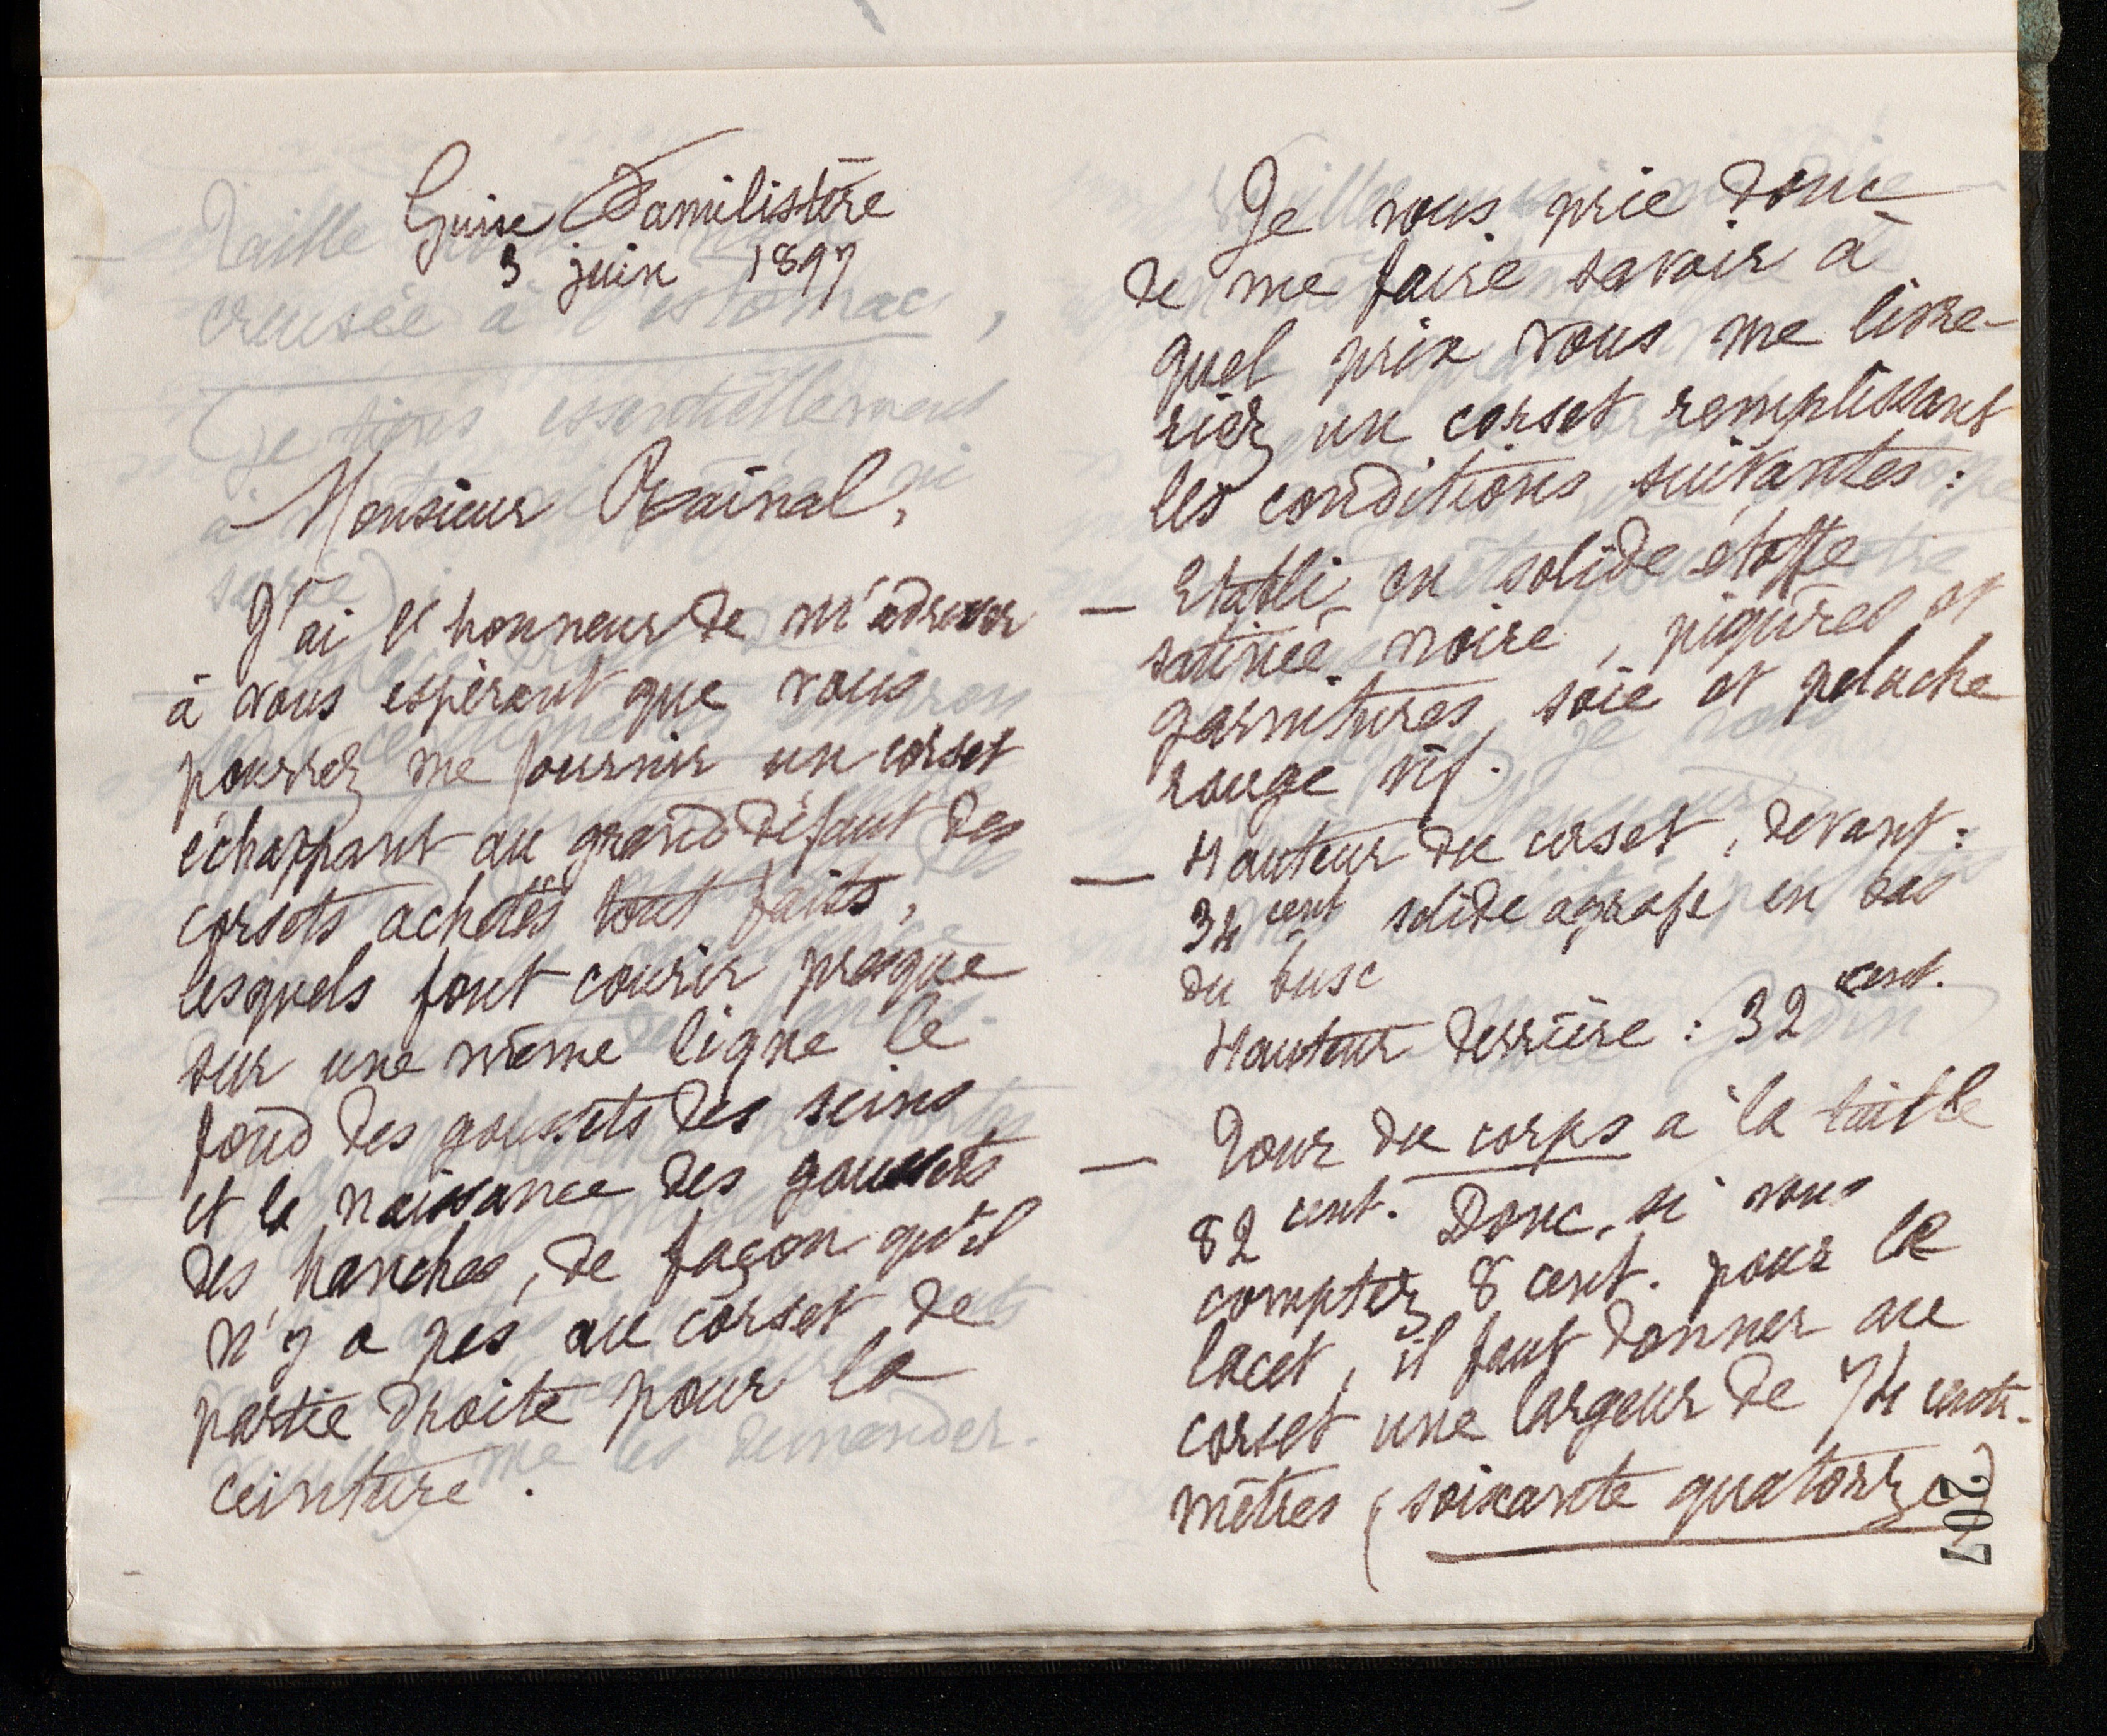 Guise Familistère
3 juin 1897
Monsieur Rainal,
J'ai l'honneur de m'adresser
à vous espérant que vous
pourrez me fournir un corset
échappant au grand défaut des
corsets achetés tout faits,
lesquels font courir presque
sur une même ligne le
fond des goussets des seins
et la naissance des goussets
des hanches, de façon qu'il
n'y a pas au corset de
partie droite pour la
ceinture.
Je vous prie donc
de me faire savoir à
quel prix vous me livre-
riez un corset remplissant
les conditions suivantes :
— Etabli en solide étoffe
satinée noire, piqûres et
garnitures soie et peluche
rouge vif.
— Hauteur du corset, devant :
34 cent solide agrafe en bas
du busc
Hauteur derrière : 32 cent.
— Tour du corps à la taille
82 cent. Donc, si vous
comptez 8 cent. pour le
lacet, il faut donner au
corset une largeur de 74 centi-
mètres (soixante quatorze)
207